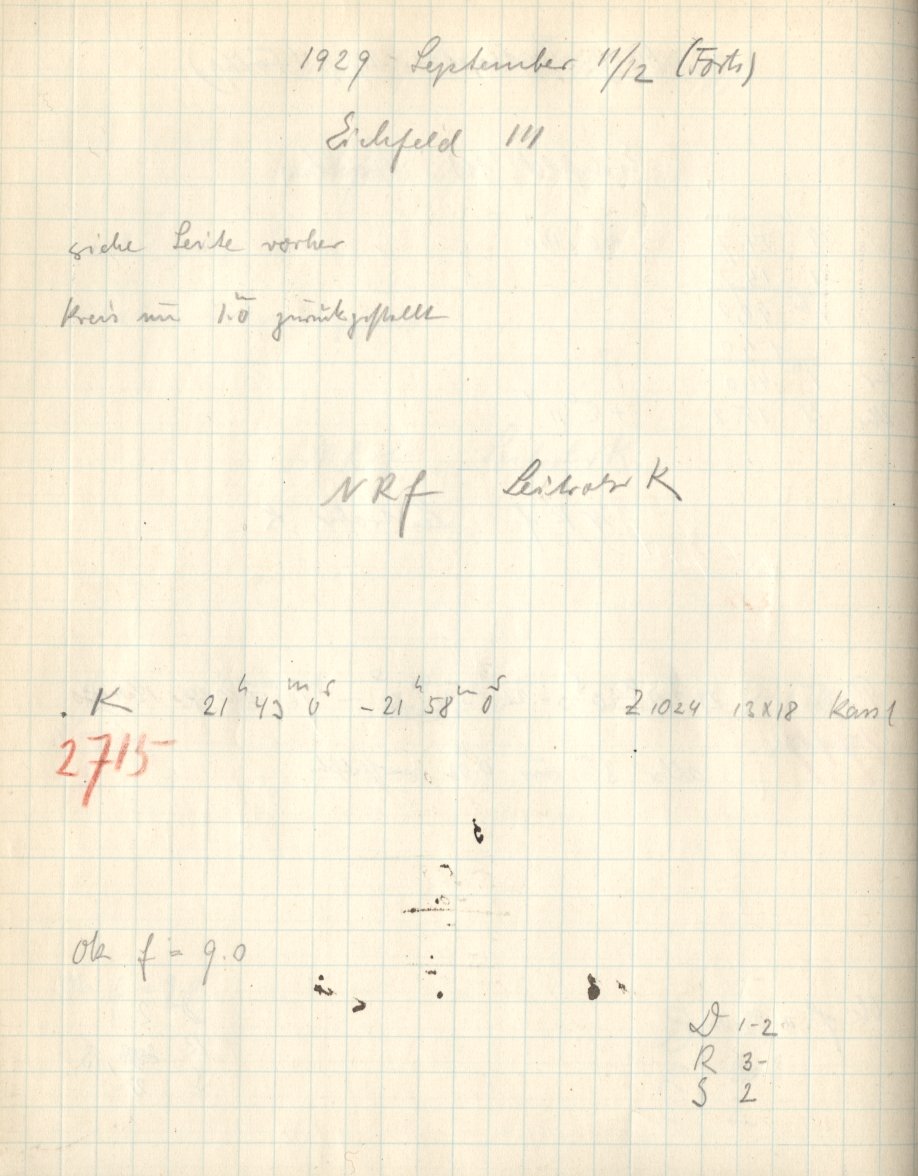 1929 September 11/12 (Forts)
Eichfeld III
siehe Seite vorher
Kreis um 1.0 zurückgestellt
NRf Leitrohr K
K 21h 43m 0s - 21h 58m 0s Z 1024 13x18 Kass
2715
Ok f = 9.0
D 1-2
R 3-
S 2